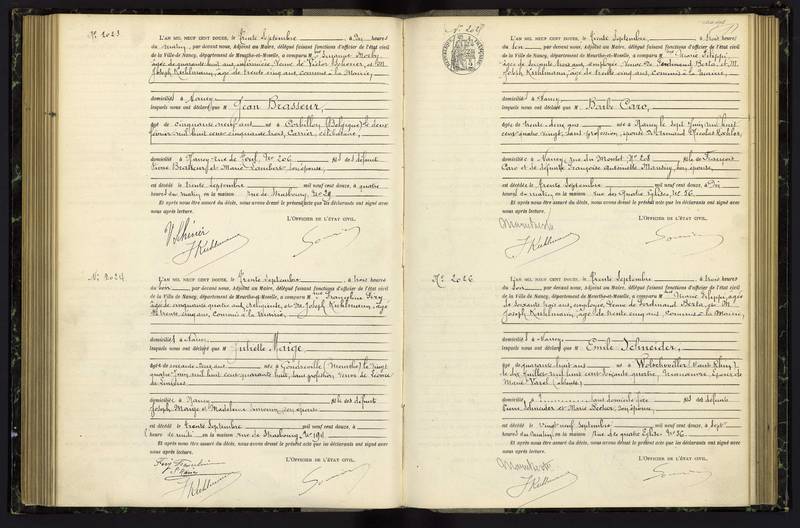 N° 2023
L'AN MIL NEUF CENT DOUZE, le trente Septembre, à Dix heures
du matin, par devant nous, Adjoint au Maire, délégué faisant fonctions d'officier de l'état civil
de la Ville de Nancy, département de Meurthe-et-Moselle, a comparu M
âgée de quarante huit ans, Veuve de Victor et M.
Joseph Kuhlmann, âgé de trente cinq ans, commis à la Mairie,
domiciliés à Nancy
lesquels nous ont déclaré que M Jean Brasseur,
âgé de cinquante neuf ans né à Corbillon (Belgique) le deux
février mil huit cent cinquante trois, Carrier, célibataire,
domicilié à Nancy rue de Toul, N° 206 fils des défunts
Pierre Brasseur et Marie Lambert son épouse,
est décédé le trente Septembre mil neuf cent douze, à quatre
heures du matin en la maison rue de Strasbourg, N° 29
Et après nous être assuré du décès, nous avons dressé le présent acte que les déclarants ont signé avec
nous après lecture.
L'OFFICIER DE L'ÉTAT CIVIL.
J Kuhlmann
N° 2024
L'AN MIL NEUF CENT DOUZE, le trente Septembre, à trois heures
du soir, par devant nous, Adjoint au Maire, délégué faisant fonctions d'officier de l'état civil
de la Ville de Nancy, département de Meurthe-et-Moselle, a comparu M Françoline
âgée de cinquante quatre ans, religieuse, et M. Joseph Kuhlmann, âgé
de trente cinq ans, commis à la Mairie,
domiciliés à Nancy
lesquels nous ont déclaré que M Juliette Maige
âgée de soixante ans née à Gondreville (Meurthe) le vingt
quatre mil huit cent quarante huit, sans profession veuve de
domiciliée à Nancy fille des défunts
Joseph Maige et Madeleine son épouse
est décédée le trente Septembre mil neuf cent douze, à
heure de midi en la maison rue de Strasbourg, N° 190
Et après nous être assuré du décès, nous avons dressé le présent acte que les déclarants ont signé avec
nous après lecture.
L'OFFICIER DE L'ÉTAT CIVIL.
J Kuhlmann
N° 2025
L'AN MIL NEUF CENT DOUZE, le trente Septembre, à trois heures
du soir, par devant nous, Adjoint au Maire, délégué faisant fonctions d'officier de l'état civil
de la Ville de Nancy, département de Meurthe-et-Moselle, a comparu M Marie Filippi,
âgée de soixante trois ans, employée, Veuve de Ferdinand Berta, et M.
Joseph Kuhlmann, âgé de trente cinq ans, commis à la Mairie,
domiciliés à Nancy
lesquels nous ont déclaré que M Barbe Caro,
âgée de trente deux ans née à Nancy le sept Juin mil huit
cent quatre vingt, sans profession, épouse de Armand Nicolas
domiciliée à Nancy, rue du Montet N° 208 fille de François
Caro et de défunte Françoise Antoinette son épouse
est décédée le trente Septembre mil neuf cent douze, à Dix
heures du matin en la maison Rue des Quatre Eglises, N° 56
Et après nous être assuré du décès, nous avons dressé le présent acte que les déclarants ont signé avec
nous après lecture.
L'OFFICIER DE L'ÉTAT CIVIL.
J Kuhlmann
N° 2026
L'AN MIL NEUF CENT DOUZE, le trente Septembre, à trois heures
du soir, par devant nous, Adjoint au Maire, délégué faisant fonctions d'officier de l'état civil
de la Ville de Nancy, département de Meurthe-et-Moselle, a comparu M Marie Filippi, âgée
de soixante trois ans, employée, Veuve de Ferdinand Berta, et M.
Joseph Kuhlmann, âgé de trente cinq ans, commis à la Mairie,
domiciliés à Nancy
lesquels nous ont déclaré que M Emile Schneider,
âgé de quarante huit ans né à (Haut Rhin)
le six Juillet mil huit cent soixante quatre, manœuvre, époux de
Marie
domicilié à ? sans domicile fixe fils des défunts
Pierre Schneider et Marie son épouse,
est décédé le vingt neuf septembre mil neuf cent douze, à sept
heures du matin en la maison Rue des quatre Eglises N° 56
Et après nous être assuré du décès, nous avons dressé le présent acte que les déclarants ont signé avec
nous après lecture.
L'OFFICIER DE L'ÉTAT CIVIL.
J Kuhlmann